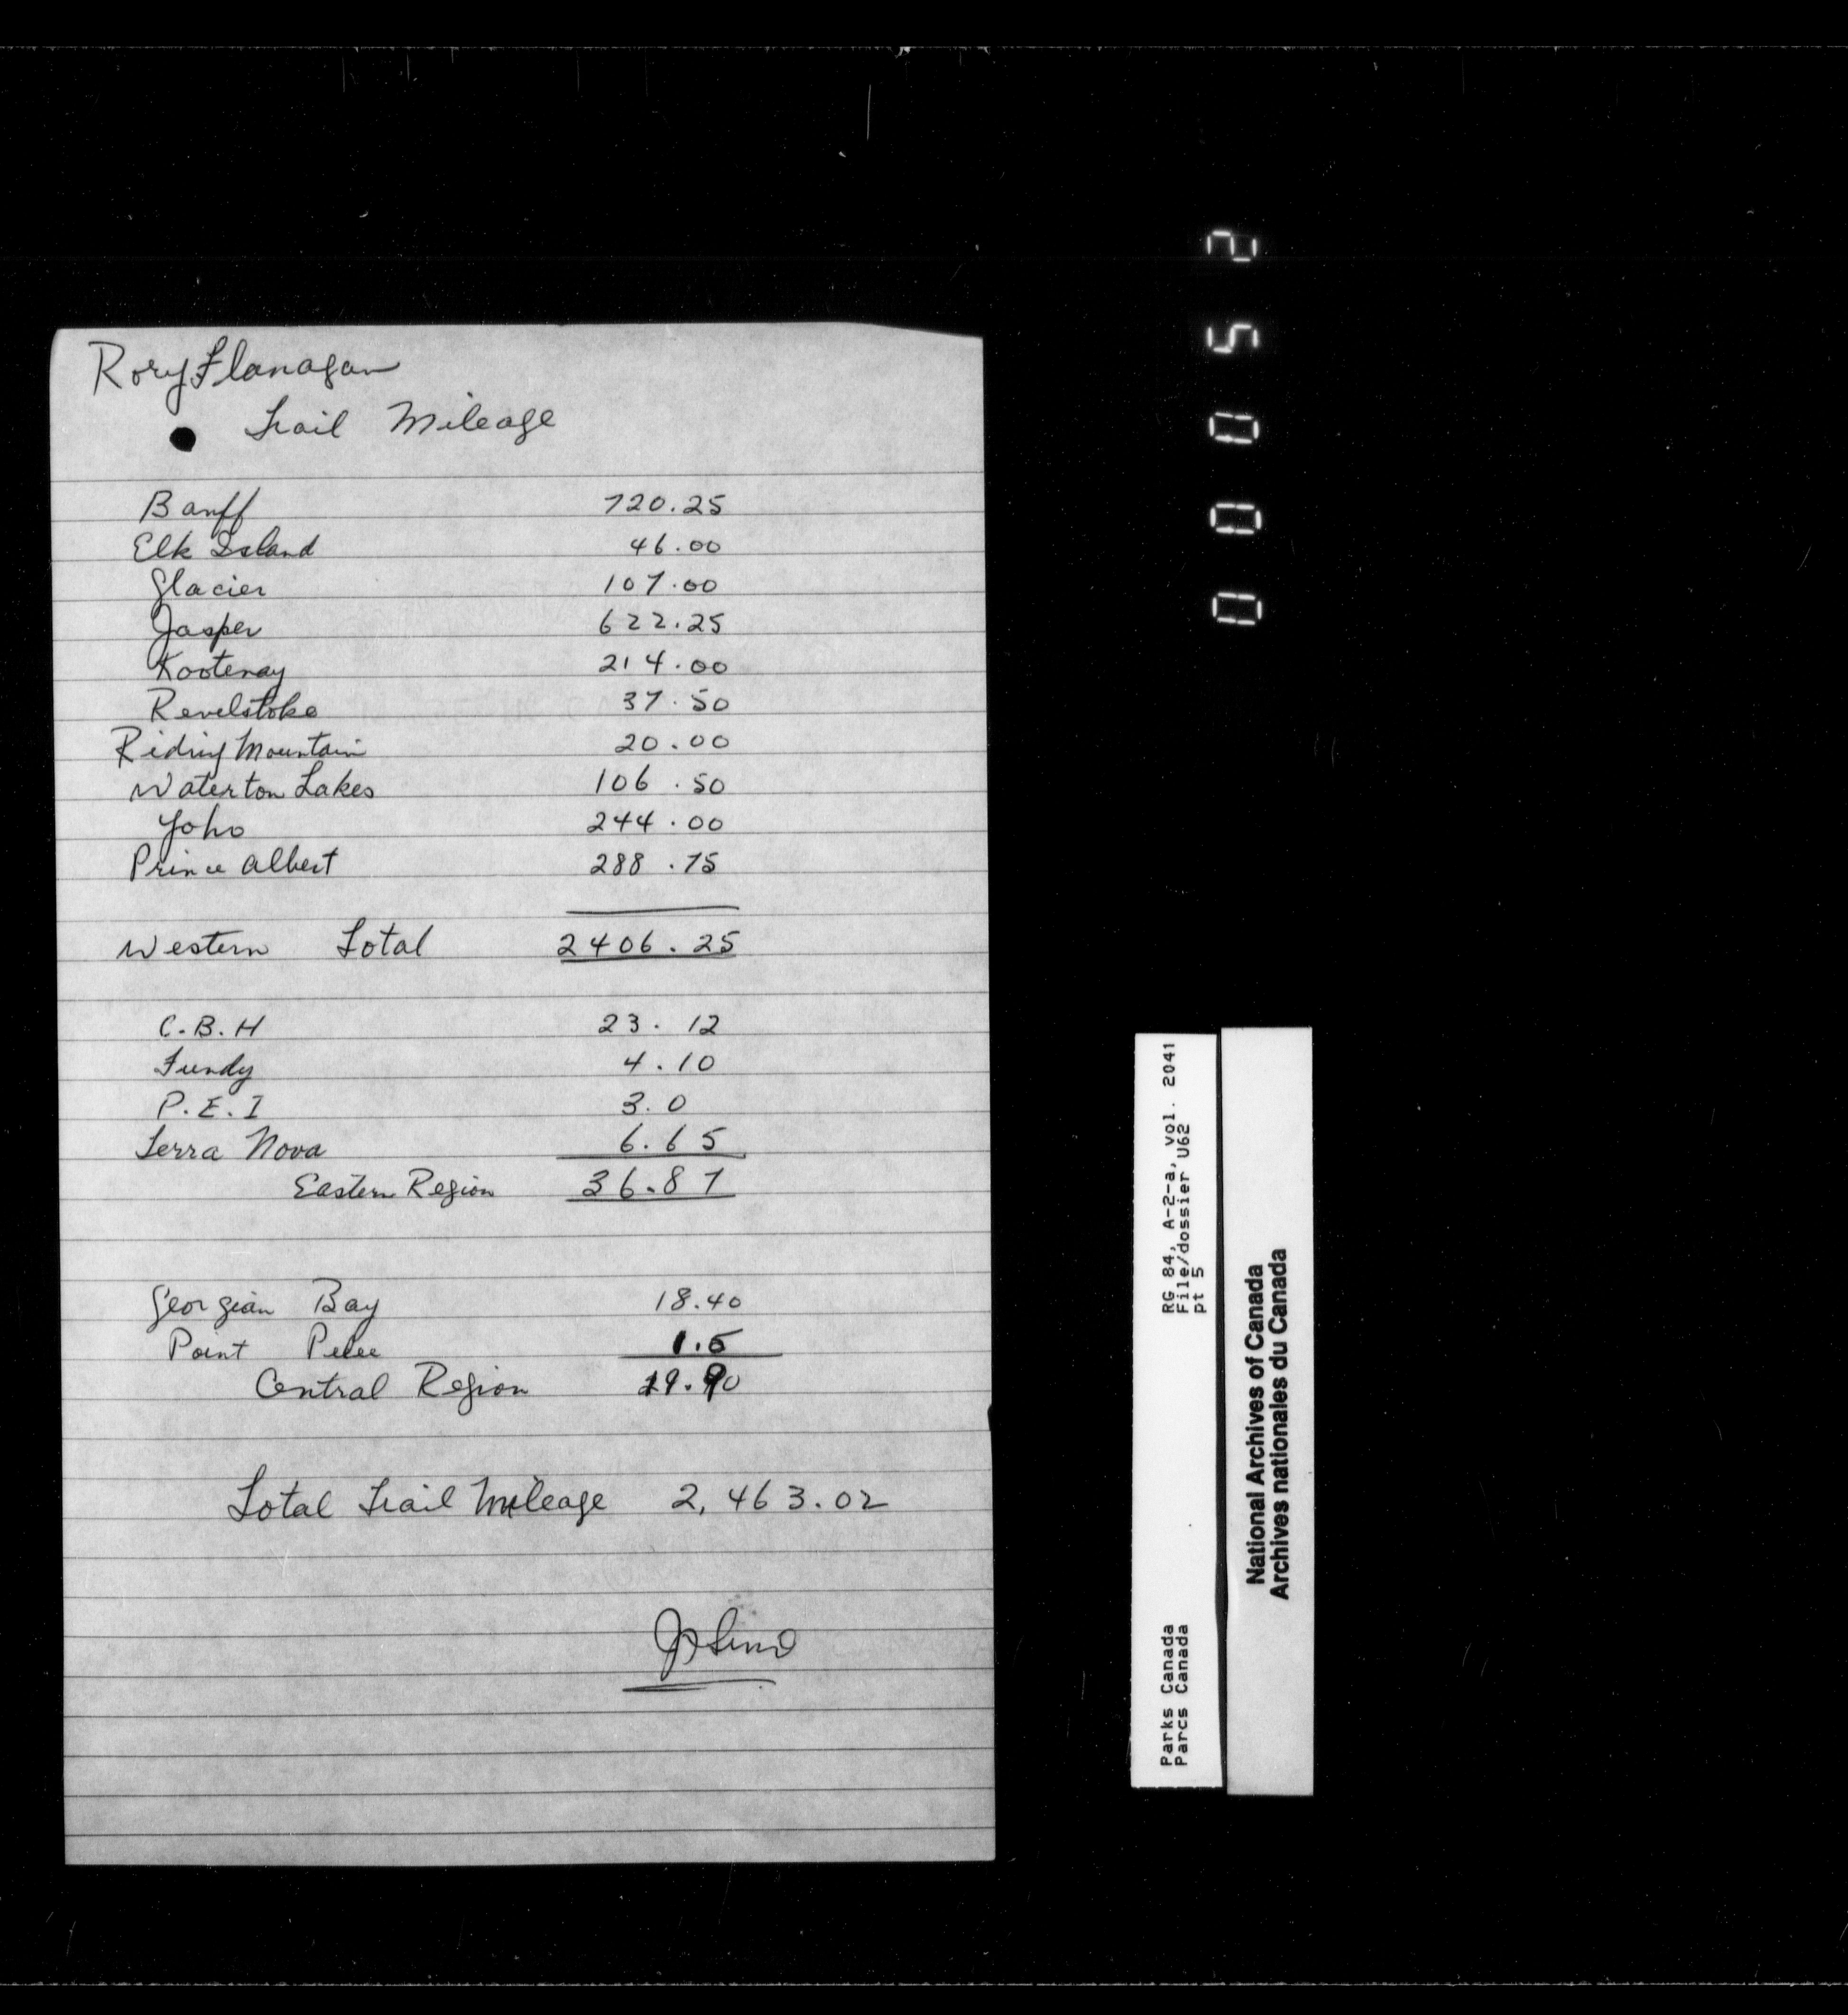 Rory Flanagan
Trail Mileage
Banff 720.25
Elk Island 46.00
Glacier 107.00
Jasper 622.25
Kootenay 214.00
Revelstoke 37.50
Riding Mountain 20.00
Waterton Lakes 106.50
Yoho 244.00
Prince Albert 288.75
Western Total 2406.25
C.B.H 23.12
Fundy 4.10
P.E.I 3.0
Terra Nova 6.65
Eastern Region 36.87
Georgian Bay 18.40
Point Pelee 1.5
Central Region 19.90
Total Trail Mileage 2,463.02
00052
Parks Canada RG 84, A-2-a, vol. 2041
Parcs Canada File/dossier U62
pt 5
National Archives of Canada
Archives nationales du Canada